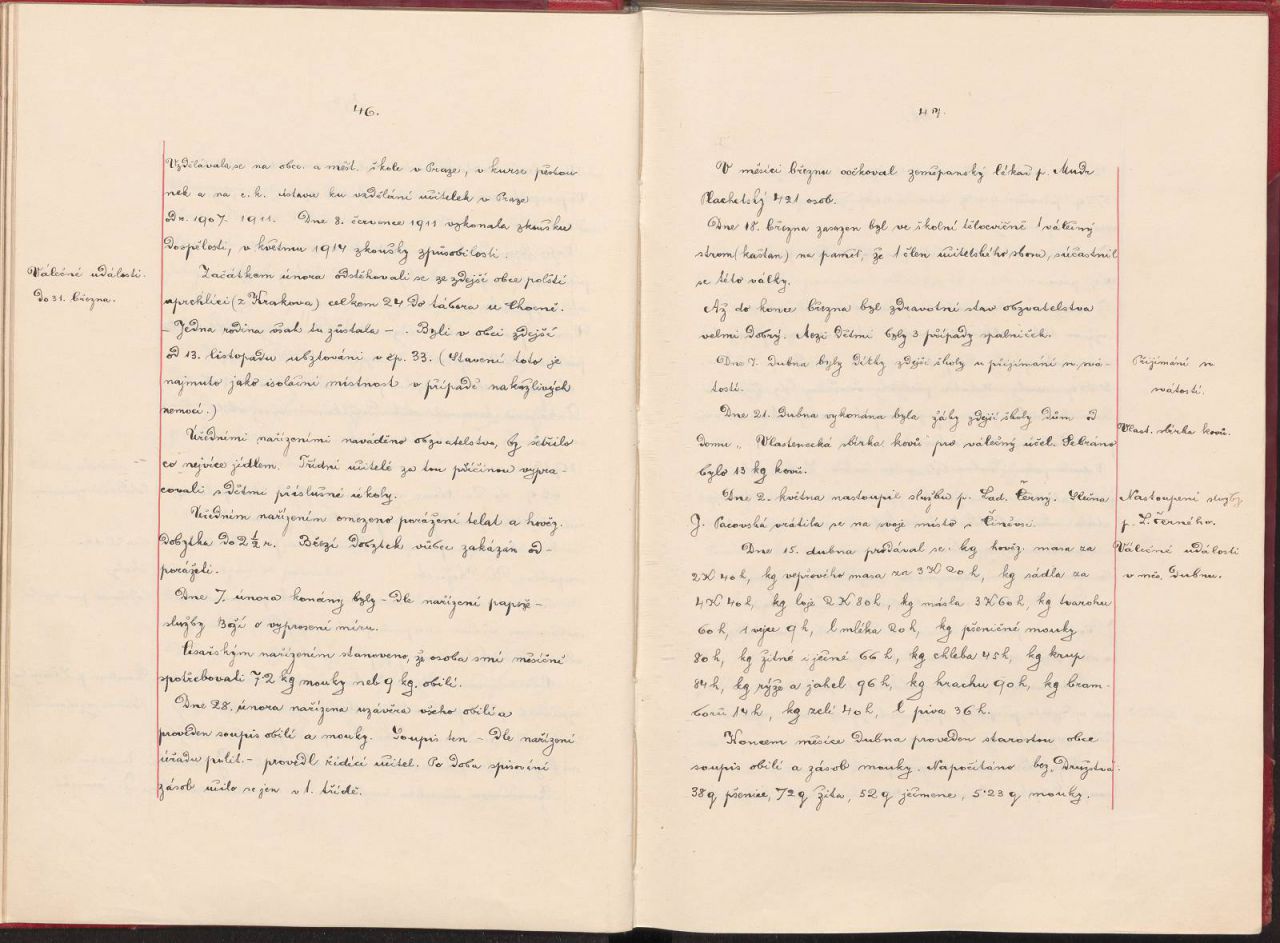 46.
Vzdělávala se na obec. a měšť. škole v Praze, v kurse pěstou
nek a na c. k. ústavu ku vzdělání učitelek v Praze
od r. 1907. 1911. Dne 8. července 1911 vykonala zkoušku
dospělosti, v květnu 1914 zkoušky způsobilosti.
Válečné události
do 31. března.
Začátkem února odstěhovali se ze zdejší obce polští
uprchlíci (z Krakova) celkem 24 do tábora u Chocně.
- Jedna rodina však tu zůstala -. Byli v obci zdejší
od 13. listopadu ubytováni v čp. 33. (Stavení toto je
najmuto jako isolační místnost v případě nakažlivých
nemocí.)
Úředními nařízeními naváděno obyvatelstvo, by šetřilo
co nejvíce jídlem. Třídní učitelé za tou příčinou vypra-
covali s dětmi příslušné úkoly.
Úředním nařízením omezeno porážení telat a hověz.
dobytka do 2 ½ r. Březí dobytek vůbec zakázán od-
porážeti.
Dne 7. února konány byly - dle nařízení papeže -
služby Boží o vyprosení míru.
Císařským nařízením stanoveno, že osoba smí měsíčně
spotřebovati 7·2 kg mouky neb 9 kg. obilí.
Dne 28. února nařízena uzávěra všeho obilí a
proveden soupis obilí a mouky. Soupis ten - dle nařízení
úřadu polit. - provedl řídící učitel. Po dobu spisování
zásob učilo se jen v 1. třídě.
47.
V měsíci březnu očkoval zeměpanský lékař p. Mudr
Plachetský 421 osob.
Dne 18. března zasazen byl ve školní tělocvičně 1 válečný
strom (kaštan) na paměť, že 1 člen učitelského sboru, súčastnil
se této války.
Až do konce března byl zdravotní stav obyvatelstva
velmi dobrý. Mezi dětmi byly 3 případy spalniček.
Dne 7. dubna byly dítky zdejší školy u přijímání sv. svá-
tostí.
Přijímání sv.
svátostí.
Dne 21. dubna vykonána byla žáky zdejší školy dům od
domu „Vlastenecká sbírka kovů" pro válečný účel. Sebráno
bylo 13 kg kovů.
Vlast. sbírka kovů.
Dne 2. května nastoupil službu p. Lad. Černý. Slečna
J. Pacovská vrátila se na svoje místo v Činěvse.
Nastoupení služby
p. L. Černého.
Dne 15. dubna prodával se: kg hověz. masa za
2K 40h, kg vepřového masa za 3K 20h, kg sádla za
4K 40h, kg loje 2K 80h, kg másla 3K 60h, kg tvarohu
60h, 1 vejce 9h, l mléka 20h, kg pšeničné mouky
80h, kg žitné i ječné 66h, kg chleba 45h, kg krup
84h, kg rýže a jahel 96h, kg hrachu 90h, kg bram-
borů 14h, kg zelí 40h, l piva 36h.
Válečné události
v měs. dubnu.
Koncem měsíce dubna proveden starostou obce
soupis obilí a zásob mouky. Napočítáno bez. Družstva:
38q pšenice, 72q žita, 52q ječmene, 5·23 q mouky.